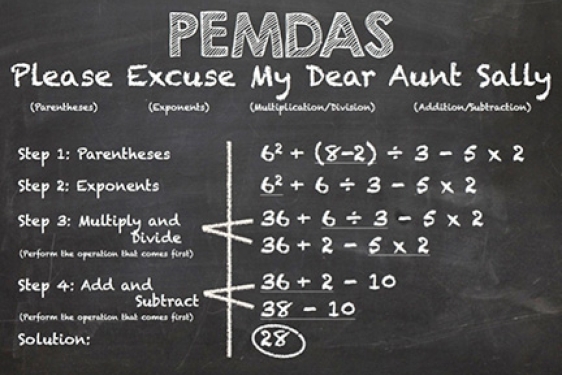 PEMDAS
Please Excuse My Dear Aunt Sally
(Parentheses) (Exponents) (Multiplication/Division) (Addition/Subtraction)
Step 1: Parentheses 6² + (8-2) ÷ 3 - 5 x 2
Step 2: Exponents 6² + 6 ÷ 3 - 5 x 2
Step 3: Multiply and 36 + 6 ÷ 3 - 5 x 2
Divide 36 + 2 - 5 x 2
(Perform the operation that comes first)
Step 4: Add and 36 + 2 - 10
Subtract 38 - 10
(Perform the operation that comes first)
Solution: 28